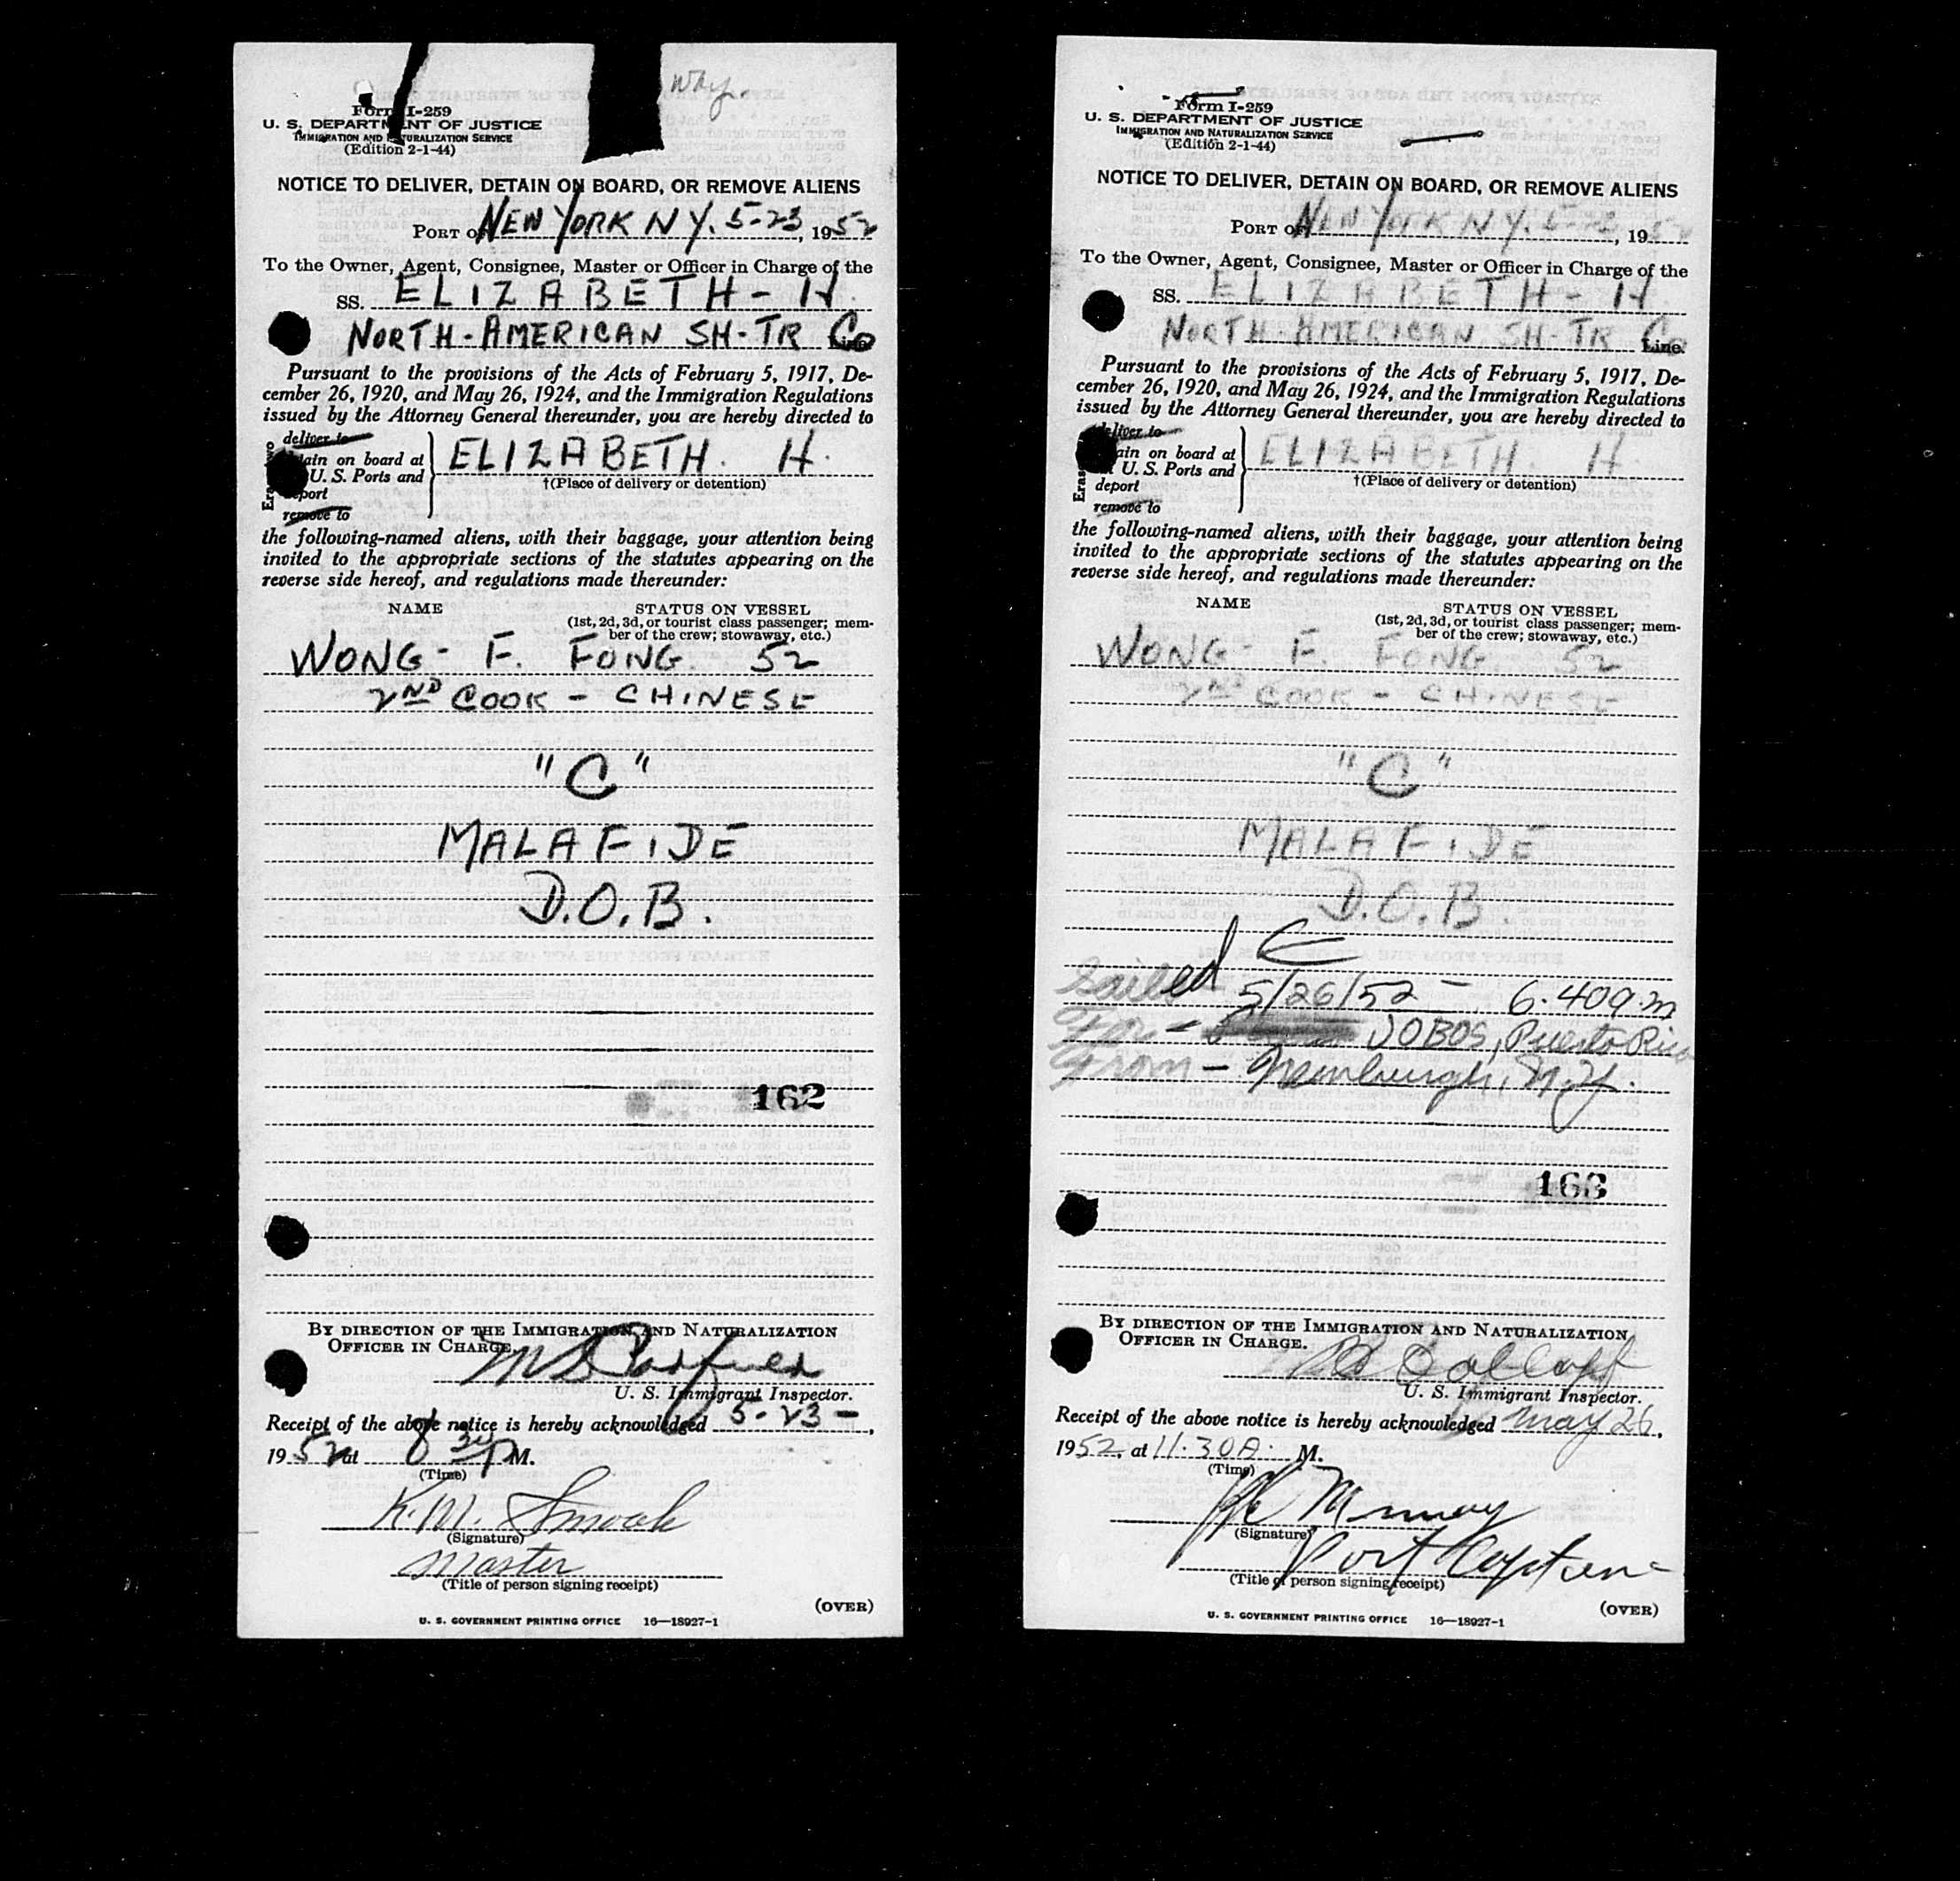 Why.
Form I-259
U. S. DEPARTMENT OF JUSTICE
IMMIGRATION AND NATURALIZATION SERVICE
(Edition 2-1-44)
NOTICE TO DELIVER, DETAIN ON BOARD, OR REMOVE ALIENS
PORT OF NEW YORK N Y. 5-23, 1952
To the Owner, Agent, Consignee, Master or Officer in Charge of the
SS. ELIZABETH - H.
NORTH-AMERICAN SH-TR Co Line.
Pursuant to the provisions of the Acts of February 5, 1917, De-
cember 26, 1920, and May 26, 1924, and the Immigration Regulations
issued by the Attorney General thereunder, you are hereby directed to
deliver to
tain on board at ELIZABETH. H.
U. S. Ports and
†(Place of delivery or detention)
deport
remove to
the following-named aliens, with their baggage, your attention being
invited to the appropriate sections of the statutes appearing on the
reverse side hereof, and regulations made thereunder:
NAME STATUS ON VESSEL
(1st, 2d, 3d, or tourist class passenger; mem-
ber of the crew; stowaway, etc.)
WONG - F. FONG. 52
2ND COOK - CHINESE
"C"
MALA FIDE
D.O.B.
162
BY DIRECTION OF THE IMMIGRATION AND NATURALIZATION
OFFICER IN CHARGE.
U. S. Immigrant Inspector.
Receipt of the above notice is hereby acknowledged 5-23-,
1952 at M.
(Time)
K. M. Smook
(Signature)
Master
(Title of person signing receipt)
(OVER)
U. S. GOVERNMENT PRINTING OFFICE 16—18927-1
Form I-259
U. S. DEPARTMENT OF JUSTICE
IMMIGRATION AND NATURALIZATION SERVICE
(Edition 2-1-44)
NOTICE TO DELIVER, DETAIN ON BOARD, OR REMOVE ALIENS
PORT OF NEW YORK N Y. 5-23, 1952
To the Owner, Agent, Consignee, Master or Officer in Charge of the
SS. ELIZABETH - H.
NORTH-AMERICAN SH-TR Co Line.
Pursuant to the provisions of the Acts of February 5, 1917, De-
cember 26, 1920, and May 26, 1924, and the Immigration Regulations
issued by the Attorney General thereunder, you are hereby directed to
deliver to
ain on board at ELIZABETH. H.
U. S. Ports and
†(Place of delivery or detention)
deport
remove to
the following-named aliens, with their baggage, your attention being
invited to the appropriate sections of the statutes appearing on the
reverse side hereof, and regulations made thereunder:
NAME STATUS ON VESSEL
(1st, 2d, 3d, or tourist class passenger; mem-
ber of the crew; stowaway, etc.)
WONG - F. FONG. 52
2ND COOK - CHINESE
"C"
MALA FIDE
D.O.B.
Sailed 5/26/52 - 6.40 a.m
For - JOBOS, Puerto Rico
From - Newburgh, N.Y.
163
BY DIRECTION OF THE IMMIGRATION AND NATURALIZATION
OFFICER IN CHARGE.
U. S. Immigrant Inspector.
Receipt of the above notice is hereby acknowledged May 26,
1952, at 11.30 A. M.
(Time)
(Signature)
Port Captain
(Title of person signing receipt)
(OVER)
U. S. GOVERNMENT PRINTING OFFICE 16—18927-1